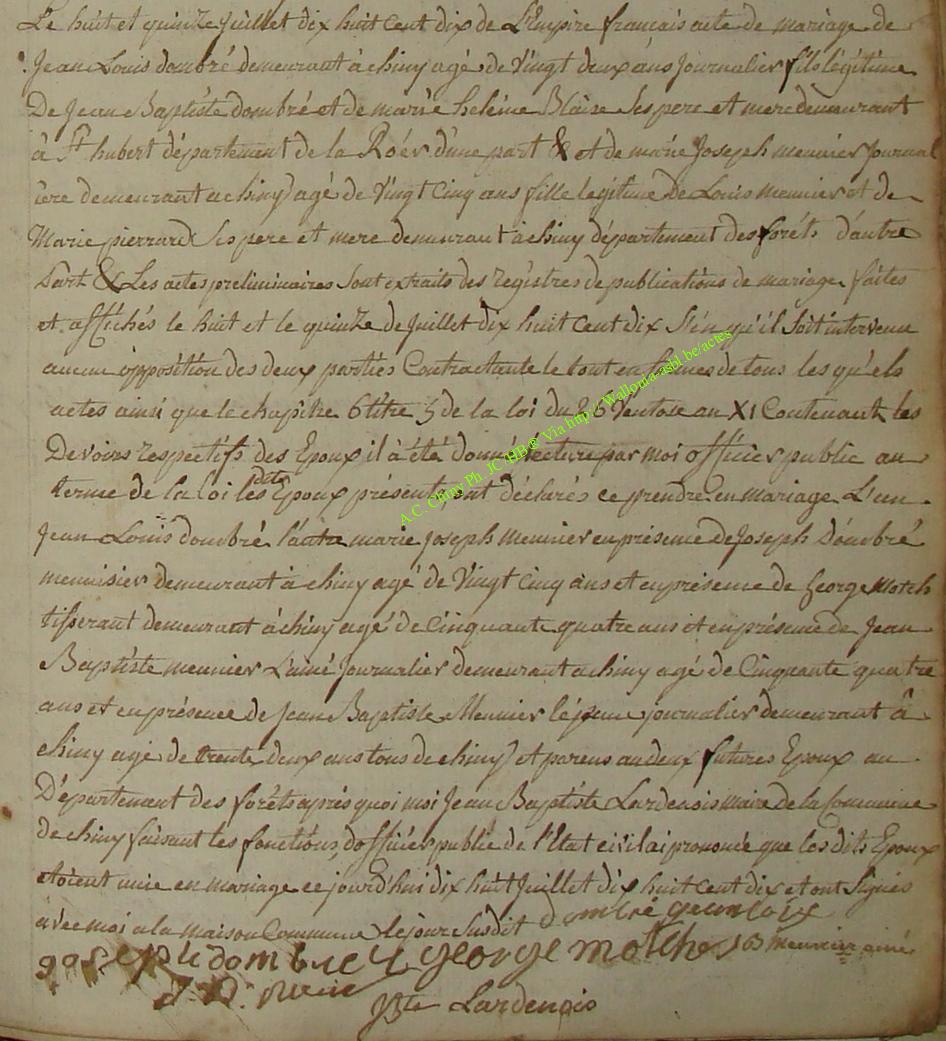 Le huit et quinze juillet dix huit cent dix de L'Empire français acte de mariage de
Jean Louis dombré demeurant à chiny agé de Vingt deux ans journalier fils légitime
De Jean Baptiste dombré et de marie heléne Blaise ses pere et mere demeurant
à St hubert département de la Roér d'une part & et de marie Joseph meunier Journal
iere demeurant a chiny agé de Vingt Cinq ans fille legitime de Louis meunier et de
Marie pierrard ses pere et mere demeurant à chiny département des foréts d'autre
part & Les actes preliminaires sont extraits des registres de publications de mariage faites
et affichés le huit et le quinze de Juillet dix huit Cent dix s'en qu'il soit intervenu
aucune opposition des deux parties Contractante le tout en formes de tous les qu'els
actes ainsi que le chapitre 6 titre 5 de la loi du 26 Ventose an XI Contenant les
Devoirs respectifs des Epoux il à été donné lecture par moi officier public au
terme de la loi les dits Epoux présents ont déclarés ce prendre en mariage L'un
Jean Louis dombré l'autre marie joseph meunier en présence de Joseph Dombré
menuisier demeurant à chiny agé de Vingt cinq ans et en présence de George Motch
tisserant demeurant à chiny agé de Cinquante quatre ans et en présence de Jean
Baptiste meunier L'ainé Journalier demeurant a chiny agé de Cinquante quatre
ans et en présence de Jean Baptiste Meunier le jeune journalier demeurant â
chiny agé de trente deux ans tous de chiny et parens au deux futures Epoux au
Département des foréts aprés quoi moi Jean Baptiste Lardenois maire de la Commune
de chiny faisant les fonctions d'officier public de l'Etat civil ai prononcé que les dits Epoux
etoient unie en mariage ce jourd'hui dix huit Juillet dix huit cent dix et ont signés
avec moi a la maison Commune le jour susdit dombré jean loix
dombre George motche JB meunier ainé
JBte Lardenois
A.C. Chiny Ph. JC HB@ Via http://Wallonia-asbl.be/actes